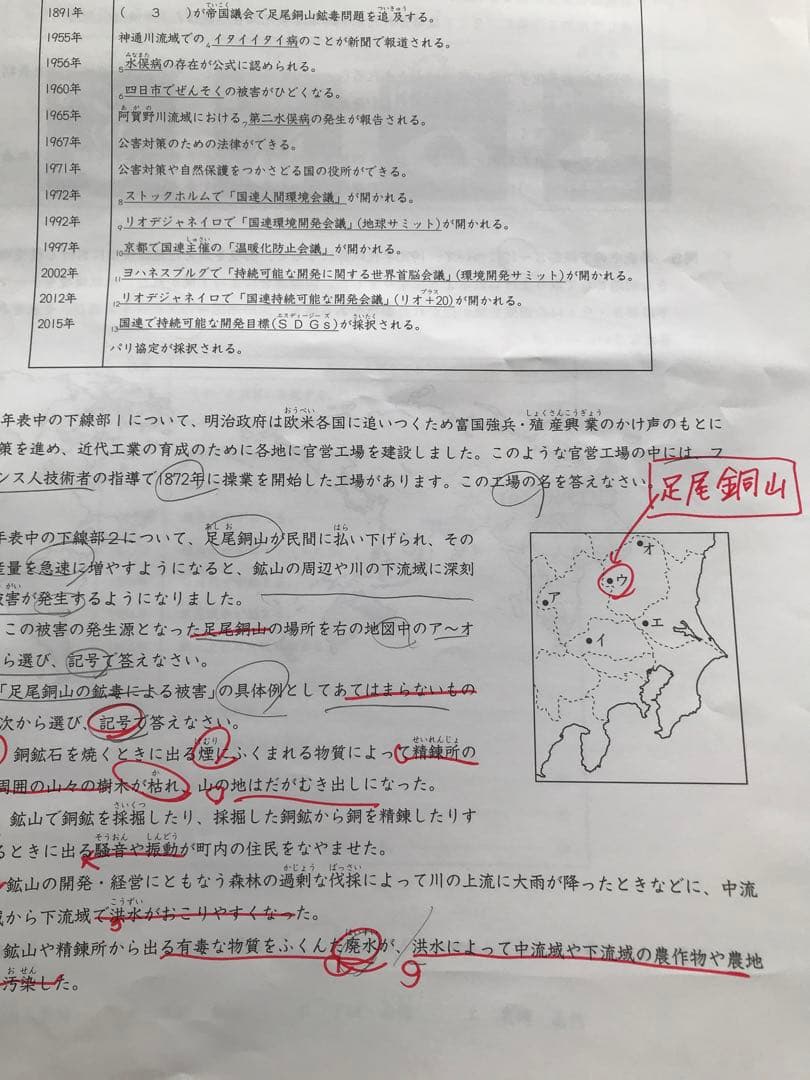 1891年 ( 3 )が帝国議会で足尾銅山鉱毒問題を追及する。
1955年 神通川流域での4イタイイタイ病のことが新聞で報道される。
1956年 5水俣病の存在が公式に認められる。
1960年 6四日市でぜんそくの被害がひどくなる。
1965年 阿賀野川流域における7第二水俣病の発生が報告される。
1967年 公害対策のための法律ができる。
1971年 公害対策や自然保護をつかさどる国の役所ができる。
1972年 8ストックホルムで「国連人間環境会議」が開かれる。
1992年 9リオデジャネイロで「国連環境開発会議」(地球サミット)が開かれる。
1997年 10京都で国連主催の「温暖化防止会議」が開かれる。
2002年 11ヨハネスブルグで「持続可能な開発に関する世界首脳会議」(環境開発サミット)が開かれる。
2012年 12リオデジャネイロで「国連持続可能な開発会議」(リオ+20)が開かれる。
2015年 13国連で持続可能な開発目標(SDGs)が採択される。
パリ協定が採択される。
年表中の下線部1について、明治政府は欧米各国に追いつくため富国強兵・殖産興業のかけ声のもとに
策を進め、近代工業の育成のために各地に官営工場を建設しました。このような官営工場の中には、フ
ンス人技術者の指導で1872年に操業を開始した工場があります。この工場の名を答えなさい。
足尾銅山
年表中の下線部2について、足尾銅山が民間に払い下げられ、その
産量を急速に増やすようになると、鉱山の周辺や川の下流域に深刻
被害が発生するようになりました。
この被害の発生源となった足尾銅山の場所を右の地図中のア〜オ
ら選び、記号で答えなさい。
「足尾銅山の鉱毒による被害」の具体例としてあてはまらないもの
次から選び、記号で答えなさい。
銅鉱石を焼くときに出る煙にふくまれる物質によって精錬所の
周囲の山々の樹木が枯れ、山の地はだがむき出しになった。
鉱山で銅鉱を採掘したり、採掘した銅鉱から銅を精錬したりす
るときに出る騒音や振動が町内の住民をなやませた。
鉱山の開発・経営にともなう森林の過剰な伐採によって川の上流に大雨が降ったときなどに、中流
域から下流域で洪水がおこりやすくなった。
鉱山や精錬所から出る有毒な物質をふくんだ廃水が、洪水によって中流域や下流域の農作物や農地
汚染した。
オ
ウ
ア
エ
イ